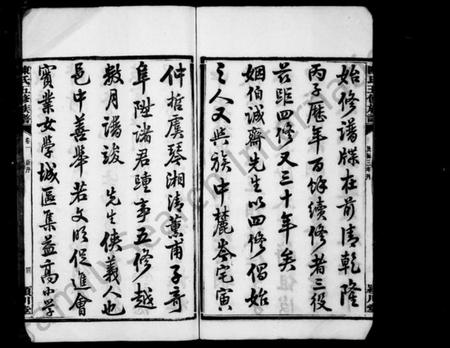 始修譜牒在前清乾隆
丙子歷年百餘續修者三役
茲距四修又三十年矣
姻伯誠齋先生以四修倡始
之人又與族中麓岑宅寅
仲哲虞琴湘清薰甫子奇
阜陞諸君踵事五修越
数月譜竣 先生俠義人也
邑中善舉若文明促進會
實業女學城區集益高小学
五修族譜
卷一